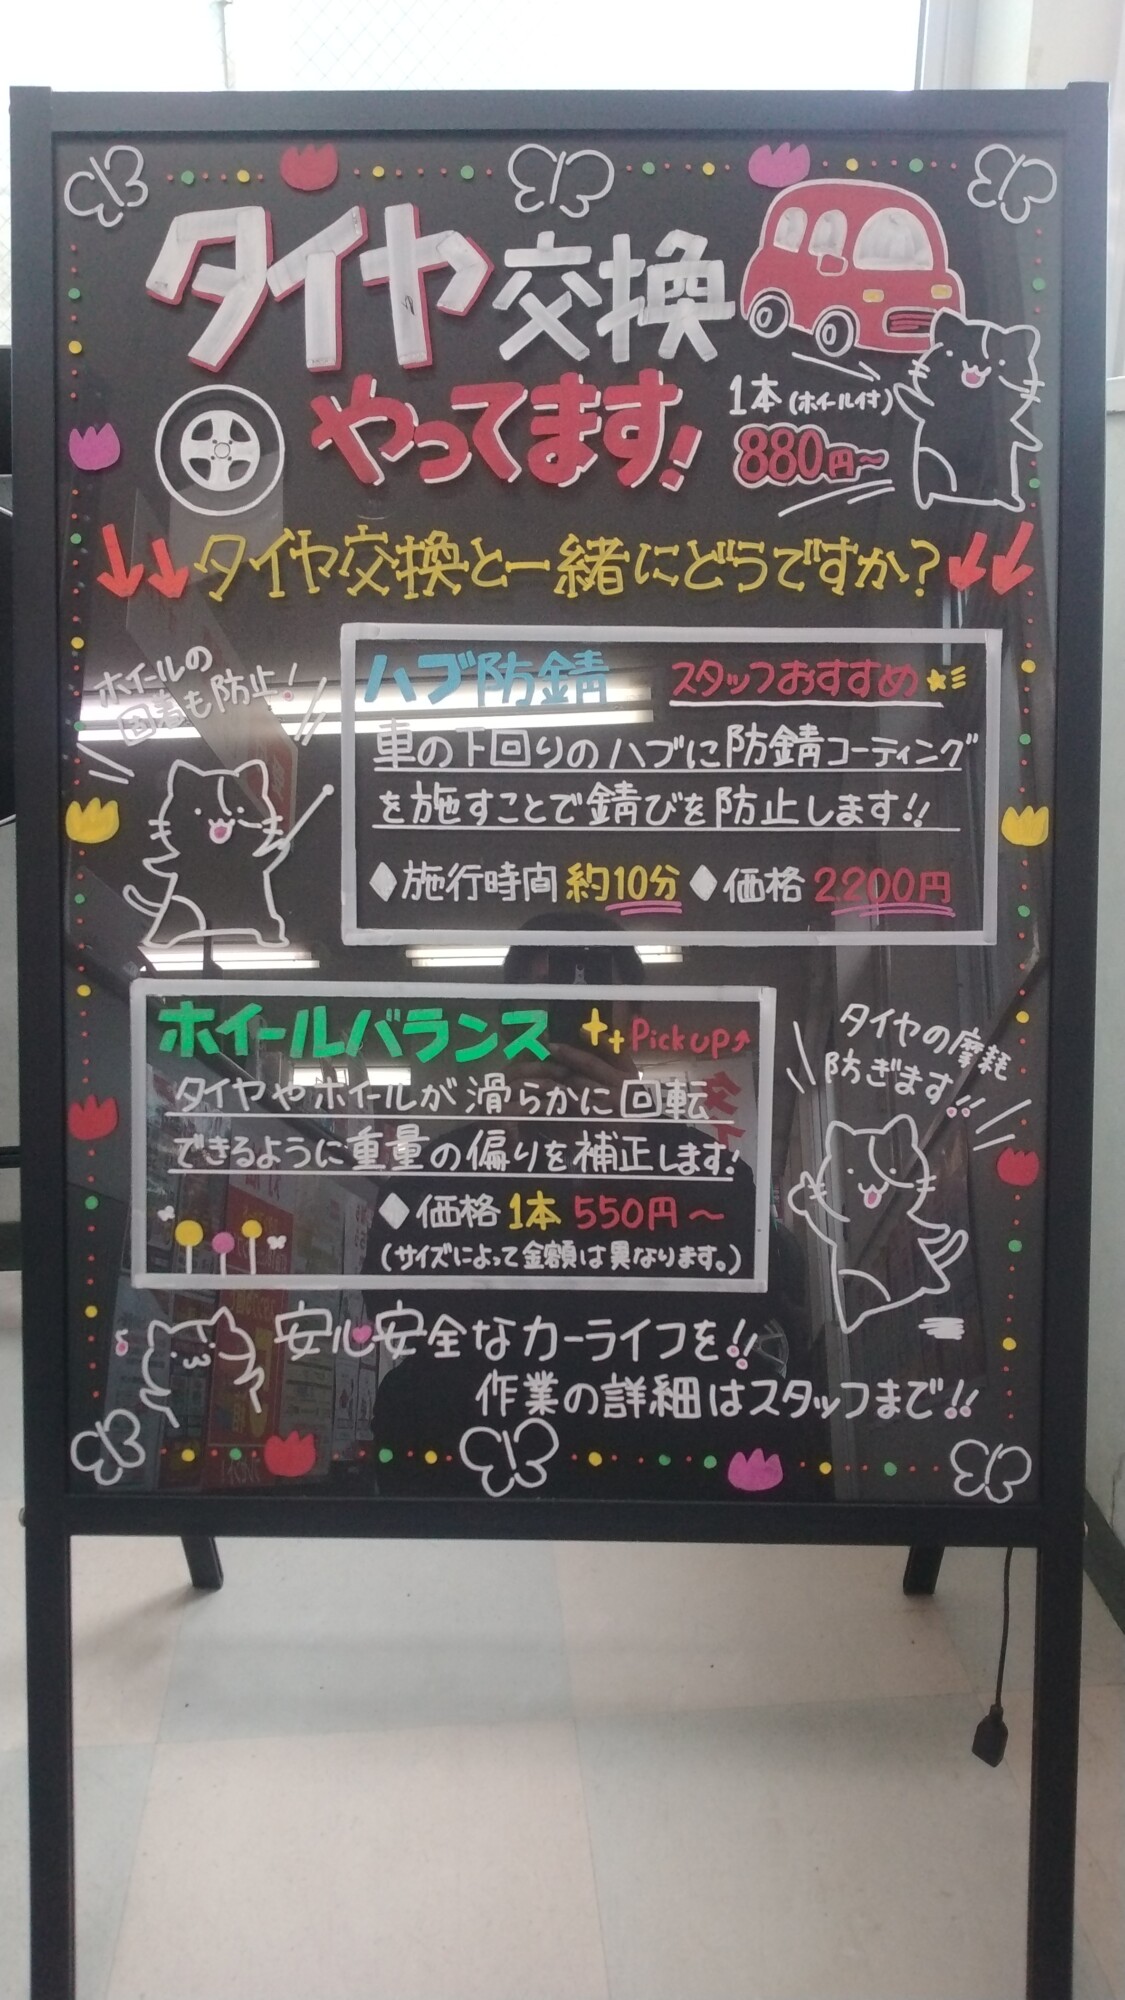 タイヤ交換
やってます!
1本(ホイール付)
880円~
タイヤ交換と一緒にどうですか?
ホイールの
固着も防止!
ハブ防錆 スタッフおすすめ
車の下回りのハブに防錆コーティング
を施すことで錆びを防止します!!
◆施行時間 約10分 ◆価格 2200円
ホイールバランス Pick up
タイヤやホイールが滑らかに回転
できるように重量の偏りを補正します!
◆価格 1本 550円~
(サイズによって金額は異なります。)
タイヤの摩耗
防ぎます!!
安心安全なカーライフを!!
作業の詳細はスタッフまで!!